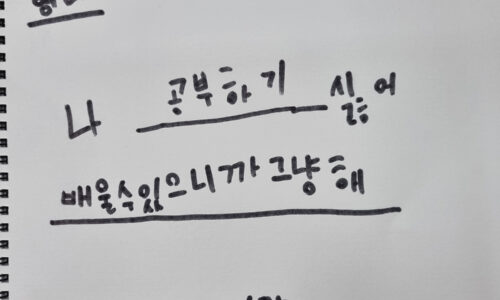 나 공부하기 싫어
배울수있으니까 그냥 해